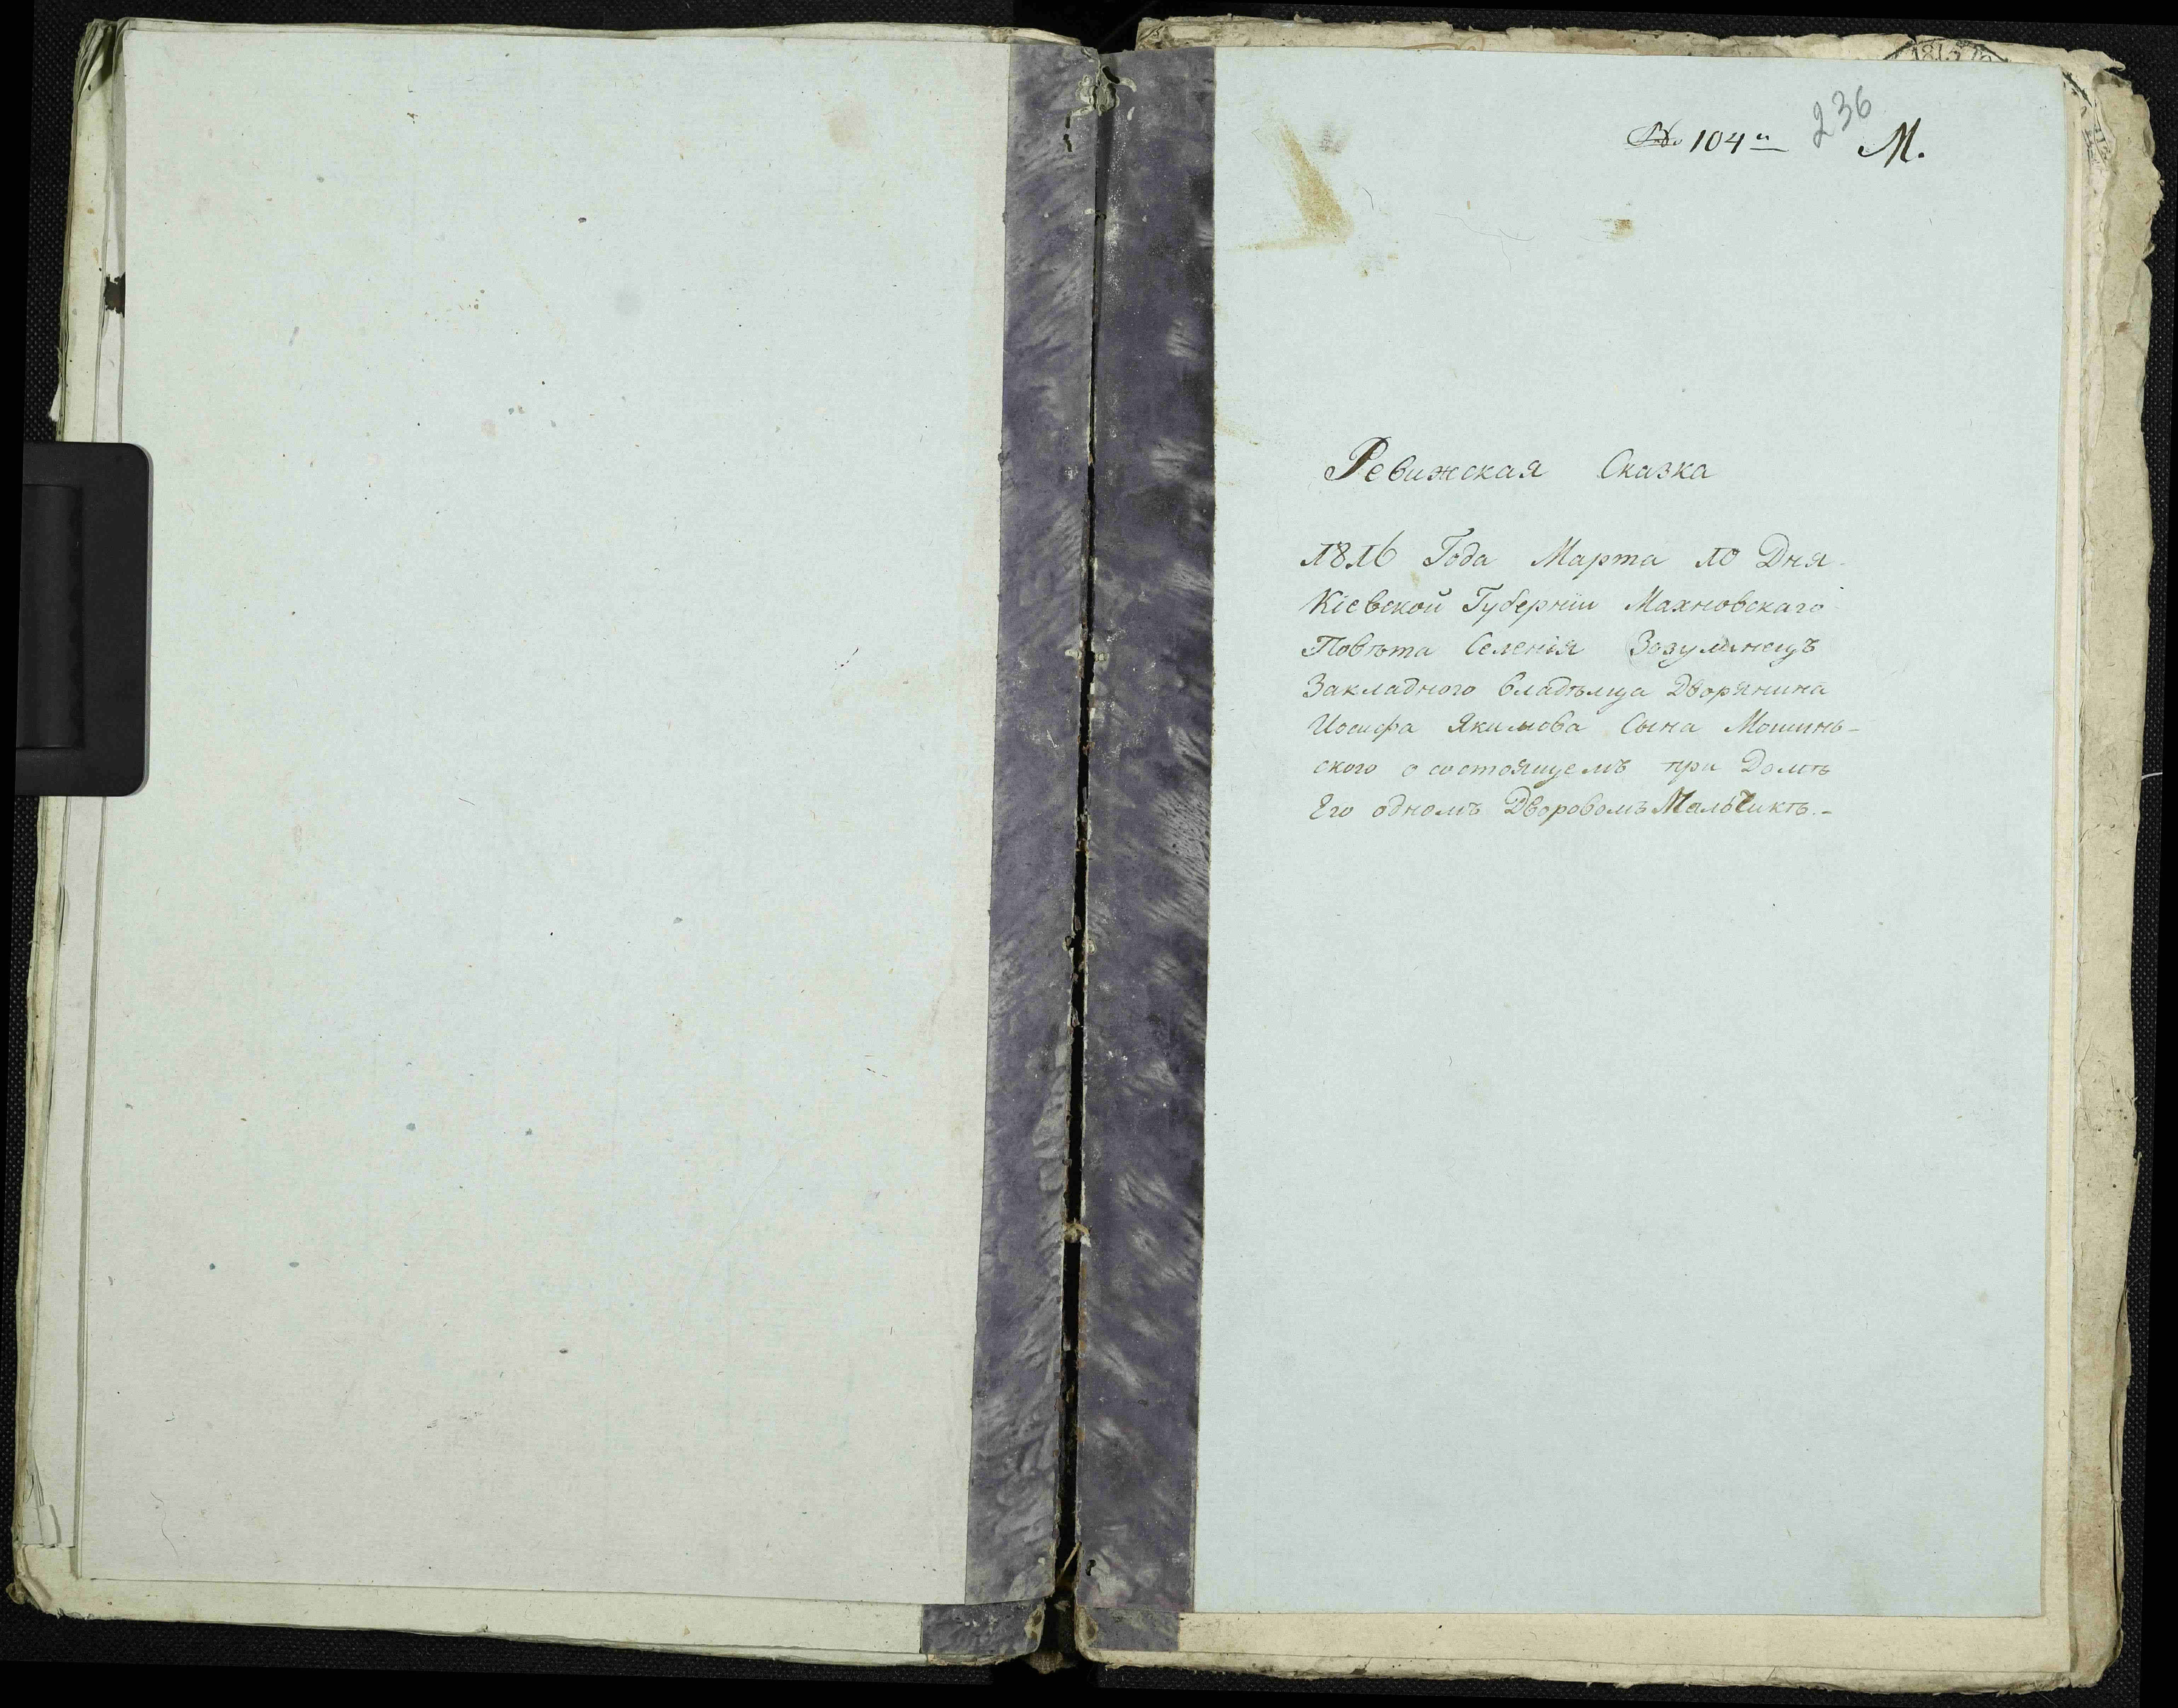 № 104й 236 М.
Ревижская Сказка
1816 Года Марта 10 Дня
Кіевской Губерніи Махновскаго
Повѣта Селенія Зозулинецъ
Закладного владѣлца Дворянина
Иосифа Якимова Сына Мошинь-
ского о состоящемъ при Домѣ
Его одномъ Дворовомъ Мальчикѣ.-